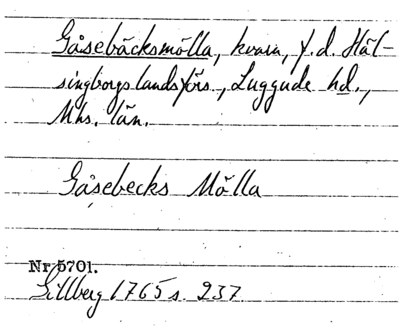 Gåsebäcksmölla, kvarn, f.d. Häl-
singborgs landsförs., Luggude hd.,
Mhs. län.
Gåsebecks Mölla
Nr 5701.
Gillberg 1765 s. 237